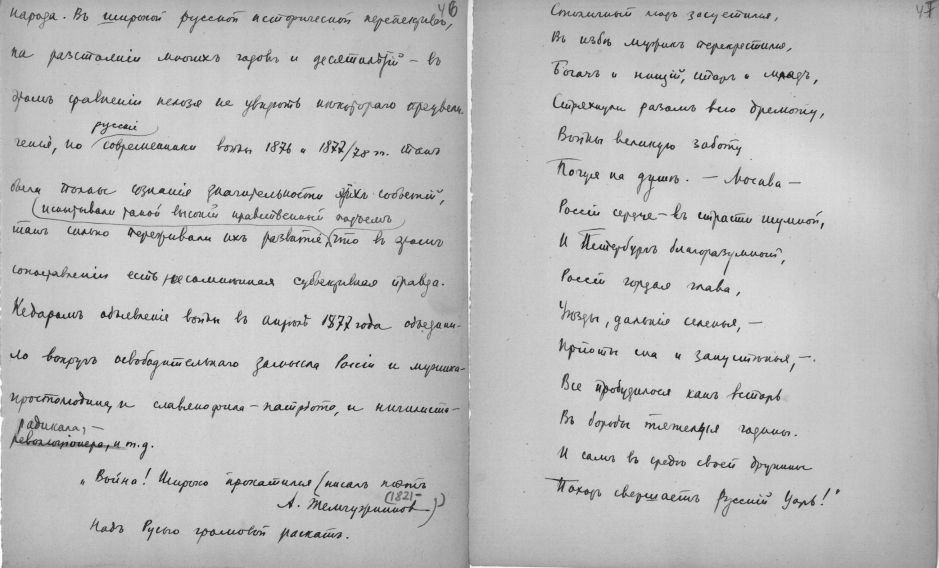 46
народа. Въ широкой русской исторической перспективѣ,
на разстояніи многихъ годовъ и десятилѣтій – въ
этомъ сравненіи нельзя не увидѣть нѣкотораго преувели-
русскіе
ченія, но современники войны 1876 и 1877/78 гг. такъ
были полны сознанія значительности этихъ событій,
испытывали такой высокій нравственный подъемъ
такъ сильно переживали ихъ развитіе, что въ этомъ
сопоставленіи есть несомнѣнная субъективная правда.
Недаромъ объявленіе войны въ апрѣлѣ 1877 года объедини-
ло вокругъ освободительнаго замысла Россіи и мужика-
простолюдина, и славянофила-патріота, и нигилиста-
радикала, –
революціонера, и т.д.
„Война! Широко прокатился (писалъ поэтъ
(1821–
А. Жемчужниковъ)
Надъ Русью громовой раскатъ.
47
Столичный людъ засуетился,
Въ избѣ мужикъ перекрестился,
Богачъ и нищій, старъ и младъ,
Стряхнули разомъ всю дремоту,
Войны великую заботу
Почуя на душѣ. – Москва –
Россіи сердце – въ страсти шумной,
И Петербургъ благоразумный,
Россіи гордая глава,
Уѣзды, дальнія селенья, –
Пріюты сна и запустѣнья, –.
Все пробудилося какъ встарь
Въ борьбы тяжелыя годины.
И самъ въ средѣ своей дружины
Походъ свершаетъ Русскій Царь!"